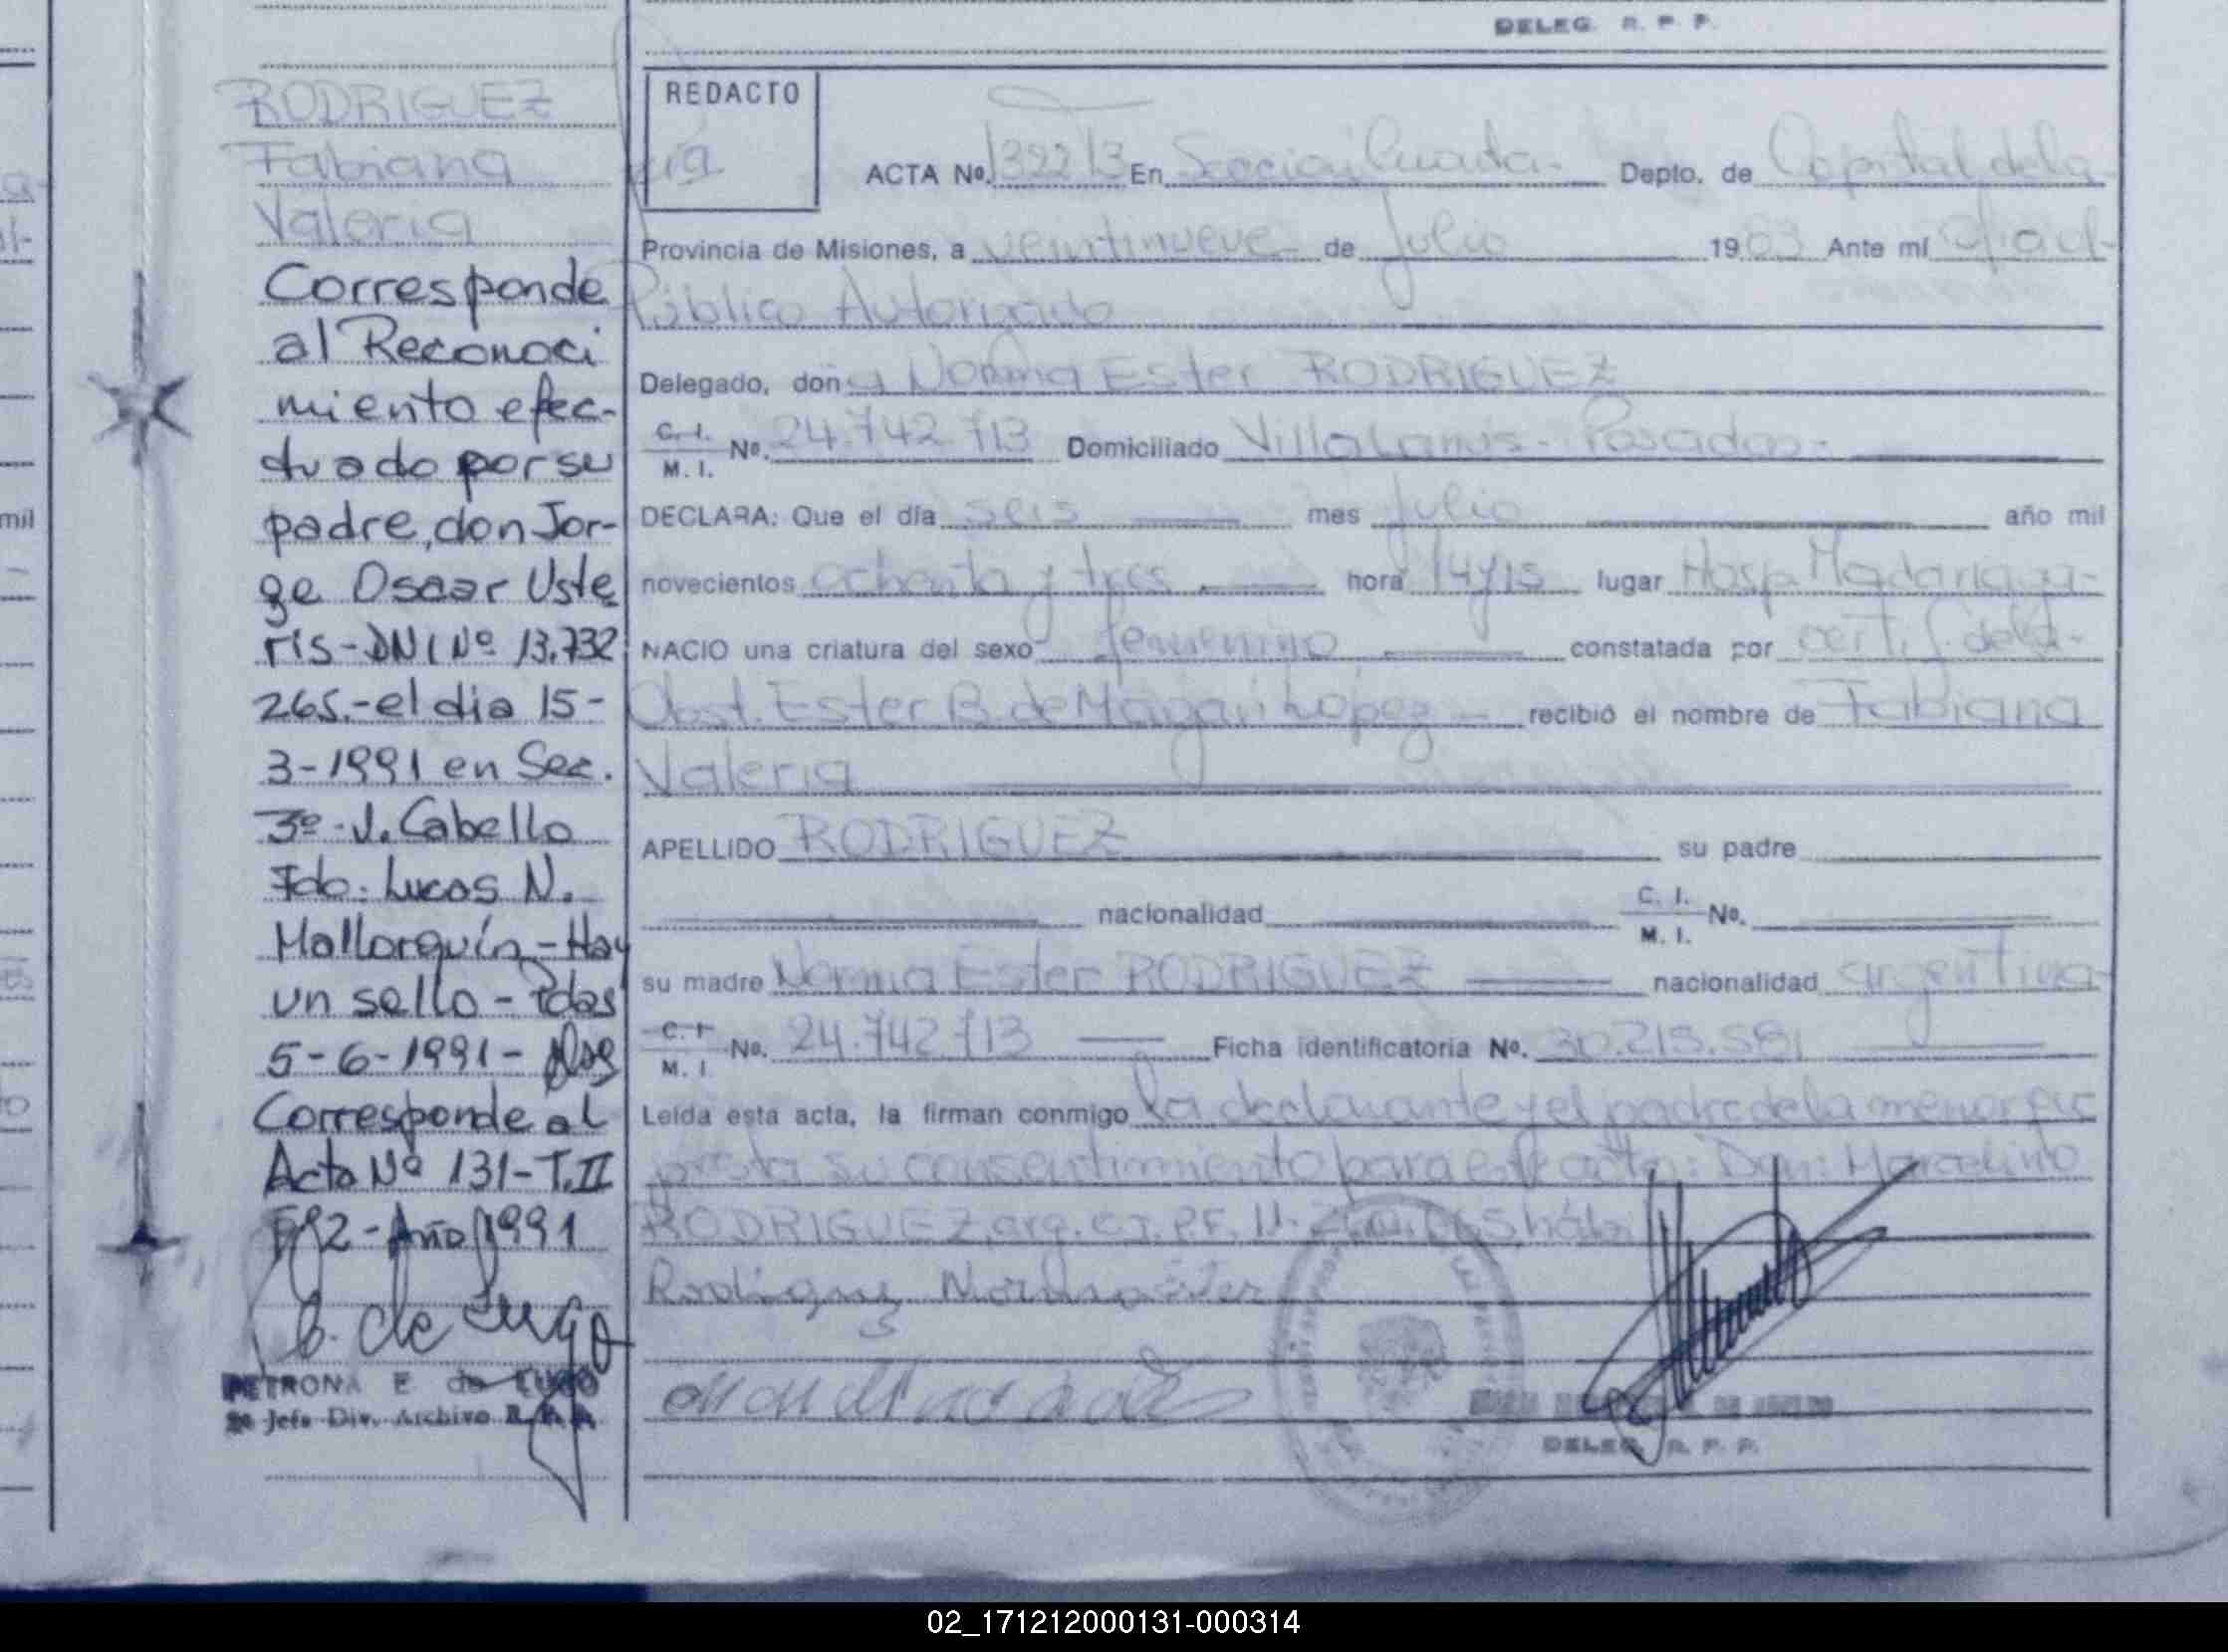 DELEG. R. P. P.
RODRIGUEZ
Fabiana
Valeria
Corresponde
al Reconoci
miento efec-
tuado por su
padre, don Jor-
ge Oscar Uste
ris-DNI Nº 13.732
265.-el dia 15-
3-1991 en Sec.
3º-J. Cabello
Fdo: Lucas N.
Mallorquín-Hay
un sello-Pdas
5-6-1991-
Corresponde al
Acta Nº 131-T.II
Fº2-Año 1991
B. de Lugo
PETRONA E de LUGO
2º Jefe Div. Archivo R. P. P.
REDACTO
ACTA Nº. 1322/3 En Sección Cuarta- Depto. de Capital de la
Provincia de Misiones, a veintinueve- de Julio 1983 Ante mí Oficial
Público Autorizado
Delegado, don a Norma Ester RODRIGUEZ
C. I. M. I. Nº. 24.742.713 Domiciliado Villa Lanus- Posadas-
DECLARA: Que el día seis mes Julio año mil
novecientos ochenta y tres hora 14y15 lugar Hosp. Madariaga-
NACIO una criatura del sexo femenino constatada por certif. de la
Obst. Ester B. de Magari Lopez - recibió el nombre de Fabiana
Valeria
APELLIDO RODRIGUEZ su padre
nacionalidad C. I. M. I. Nº.
su madre Norma Ester RODRIGUEZ nacionalidad argentina
C. I. M. I. Nº. 24.742.713 Ficha identificatoria Nº. 30.215.591
Leída esta acta, la firman conmigo la declarante y el padre de la menor que
presta su consentimiento para este acto: Don: Marcelino
RODRIGUEZ, arg. C.I. P.F.
Rodriguez Norma Ester
DELEG. R. P. P.
02_171212000131-000314